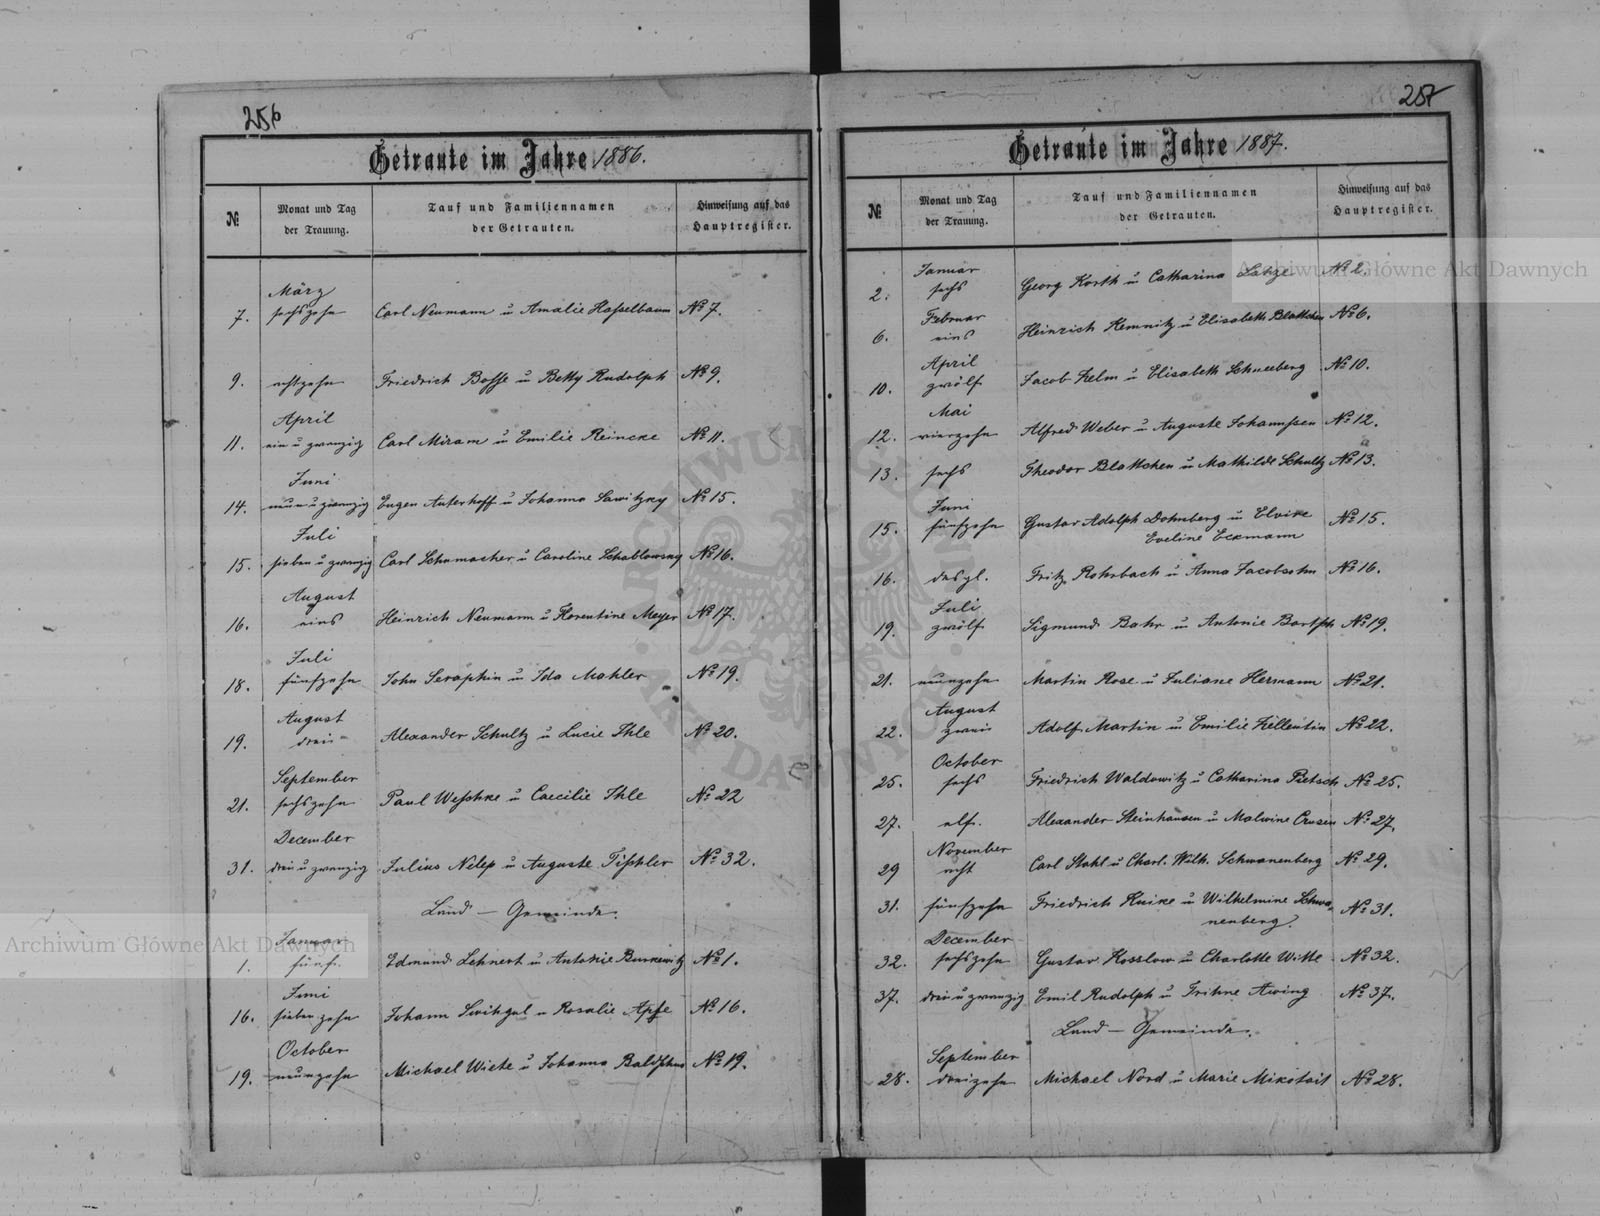 256
Getraute im Jahre 1886.
№
Monat und Tag
der Trauung.
Tauf und Familiennamen
der Getrauten.
Hinweisung auf das
Hauptregister.
März
7. sechszehn Carl Neumann u Amalie Hasselbaum № 7.
9. achtzehn Friedrich Bosse u Betty Rudolph № 9.
April
11. ein u zwanzig Carl Miram u Emilie Reincke № 11.
Juni
14. neun u zwanzig Eugen Auterhoff u Johanna Sawitzky № 15.
Juli
15. sieben u zwanzig Carl Schumacher u Caroline Schablowsky № 16.
August
16. eins Heinrich Neumann u Florentine Meyer № 17.
Juli
18. fünfzehn John Seraphin u Ida Mahler № 19.
August
19. drei Alexander Schultz u Lucie Ihle № 20.
September
21. sechszehn Paul Weschke u Caecilie Ihle № 22
December
31. drei u zwanzig Julius Nilep u Auguste Tischler № 32.
Land - Gemeinde.
Januar
1. fünf. Edmund Lehnert u Antonie Burkewitz № 1.
Juni
16. siebenzehn Johann u Rosalie Apse № 16.
October
19. neunzehn Michael Wiete u Johanna № 19.
257
Getraute im Jahre 1887.
№
Monat und Tag
der Trauung.
Tauf und Familiennamen
der Getrauten.
Hinweisung auf das
Hauptregister.
Januar
2. sechs Georg Korth u Catharina Latze № 2.
Februar
6. eins Heinrich Kemnitz u Elisabeth Blattchen № 6.
April
10. zwölf Jacob Zelm u Elisabeth Schneeberg № 10.
Mai
12. vierzehn Alfred Weber u Auguste Johannsen № 12.
13. sechs Theodor Blattchen u Mathilde Schultz № 13.
Juni
15. fünfzehn Gustav Adolph Dohnberg u Elvire № 15.
Eveline Eckmann
16. desgl. Fritz Rohrbach u Anna Jacobsohn № 16.
Juli
19. zwölf Sigmund Bahr u Antonie Bartsch № 19.
21. neunzehn Martin Rose u Juliane Hermann № 21.
August
22. zwei Adolf Martin u Emilie Zellentin № 22.
October
25. sechs Friedrich Waldowitz u Catharina Pietsch № 25.
27. elf. Alexander Steinhausen u Malwine Crusen № 27.
November
29 acht Carl Stahl u Charl. Wilh. Schwanenberg № 29.
31. fünfzehn Friedrich Knike u Wilhelmine Schwa- № 31.
nenberg.
December
32. sechszehn Gustav Kosslow u Charlotte Witte № 32.
37. drei u zwanzig Emil Rudolph u Trihne Awing № 37.
Land - Gemeinde.
September
28. dreizehn Michael Nord u Marie Mikotait № 28.
Archiwum Główne Akt Dawnych
Archiwum Główne Akt Dawnych
ARCHIWUM GŁÓWNE AKT DAWNYCH